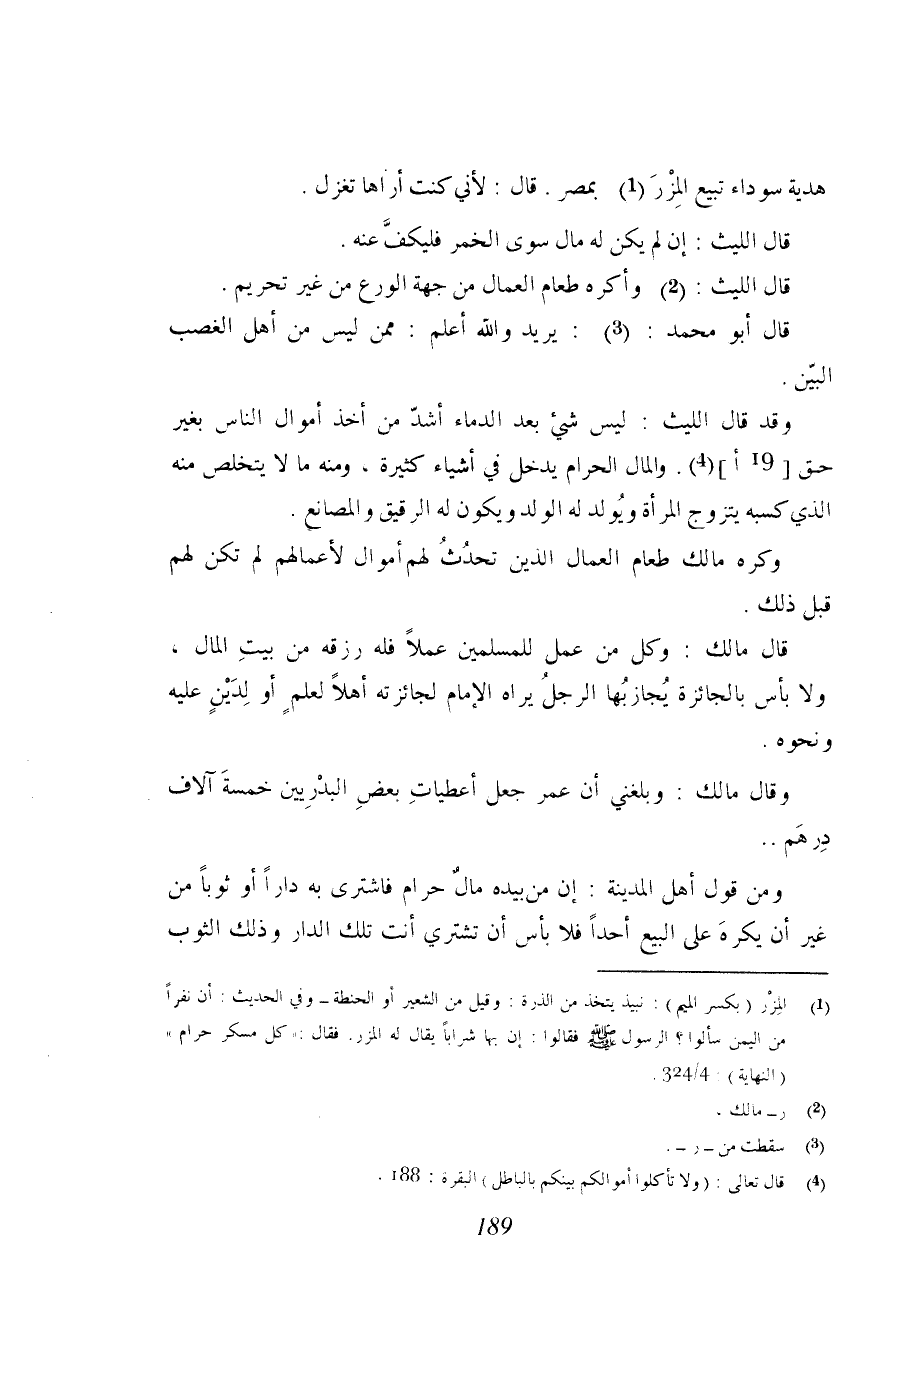 هدية سوداء تبيع المِزْرَ (1) بمصر . قال : لأني كنت أراها تغزل .
قال الليث : إن لم يكن له مال سوى الخمر فليكفَّ عنه .
قال الليث : (2) وأكره طعام العمال من جهة الورع من غير تحريم .
قال أبو محمد : (3) : يريد والله أعلم : ممن ليس من أهل الغصب
البيّن .
وقد قال الليث : ليس شيْ بعد الدماء أشدّ من أخذ أموال الناس بغير
حق [ 19 أ ](4) . والمال الحرام يدخل في أشياء كثيرة ، ومنه ما لا يتخلص منه
الذي كسبه يتزوج المرأة ويُولد له الولد ويكون له الرقيق والمصانع .
وكره مالك طعام العمال الذين تحدُثُ لهم أموال لأعمالهم لم تكن لهم
قبل ذلك .
قال مالك : وكل من عمل للمسلمين عملاً فله رزقه من بيتِ المال ،
ولا بأس بالجائزة يُجازبُها الرجلُ يراه الإمام لجائزته أهلاً لعلمٍ أو لِدَيْنٍ عليه
ونحوه .
وقال مالك : وبلغني أن عمر جعل أعطياتِ بعضِ البدْرِيين خمسةَ آلاف
دِرهَم ..
ومن قول أهل المدينة : إن من بيده مالٌ حرام فاشترى به داراً أو ثوباً من
غير أن يكرهَ على البيع أحداً فلا بأس أن تشتري أنت تلك الدار وذلك الثوب
(1) المِزْر ( بكسر الميم ) : نبيذ يتخذ من الذرة : وقيل من الشعير أو الحنطة ـ وفي الحديث : أن نفراً
من اليمن سألوا ؟ الرسول ﷺ فقالوا : إن بها شراباً يقال له المزر. فقال :« كل مسكر حرام »
( النهاية ) : 324/4 .
(2) ر ـ مالك .
(3) سقطت من ـ ر ـ .
(4) قال تعالى : ( ولا تأكلوا أموالكم بينكم بالباطل ) البقرة : 188 .
189